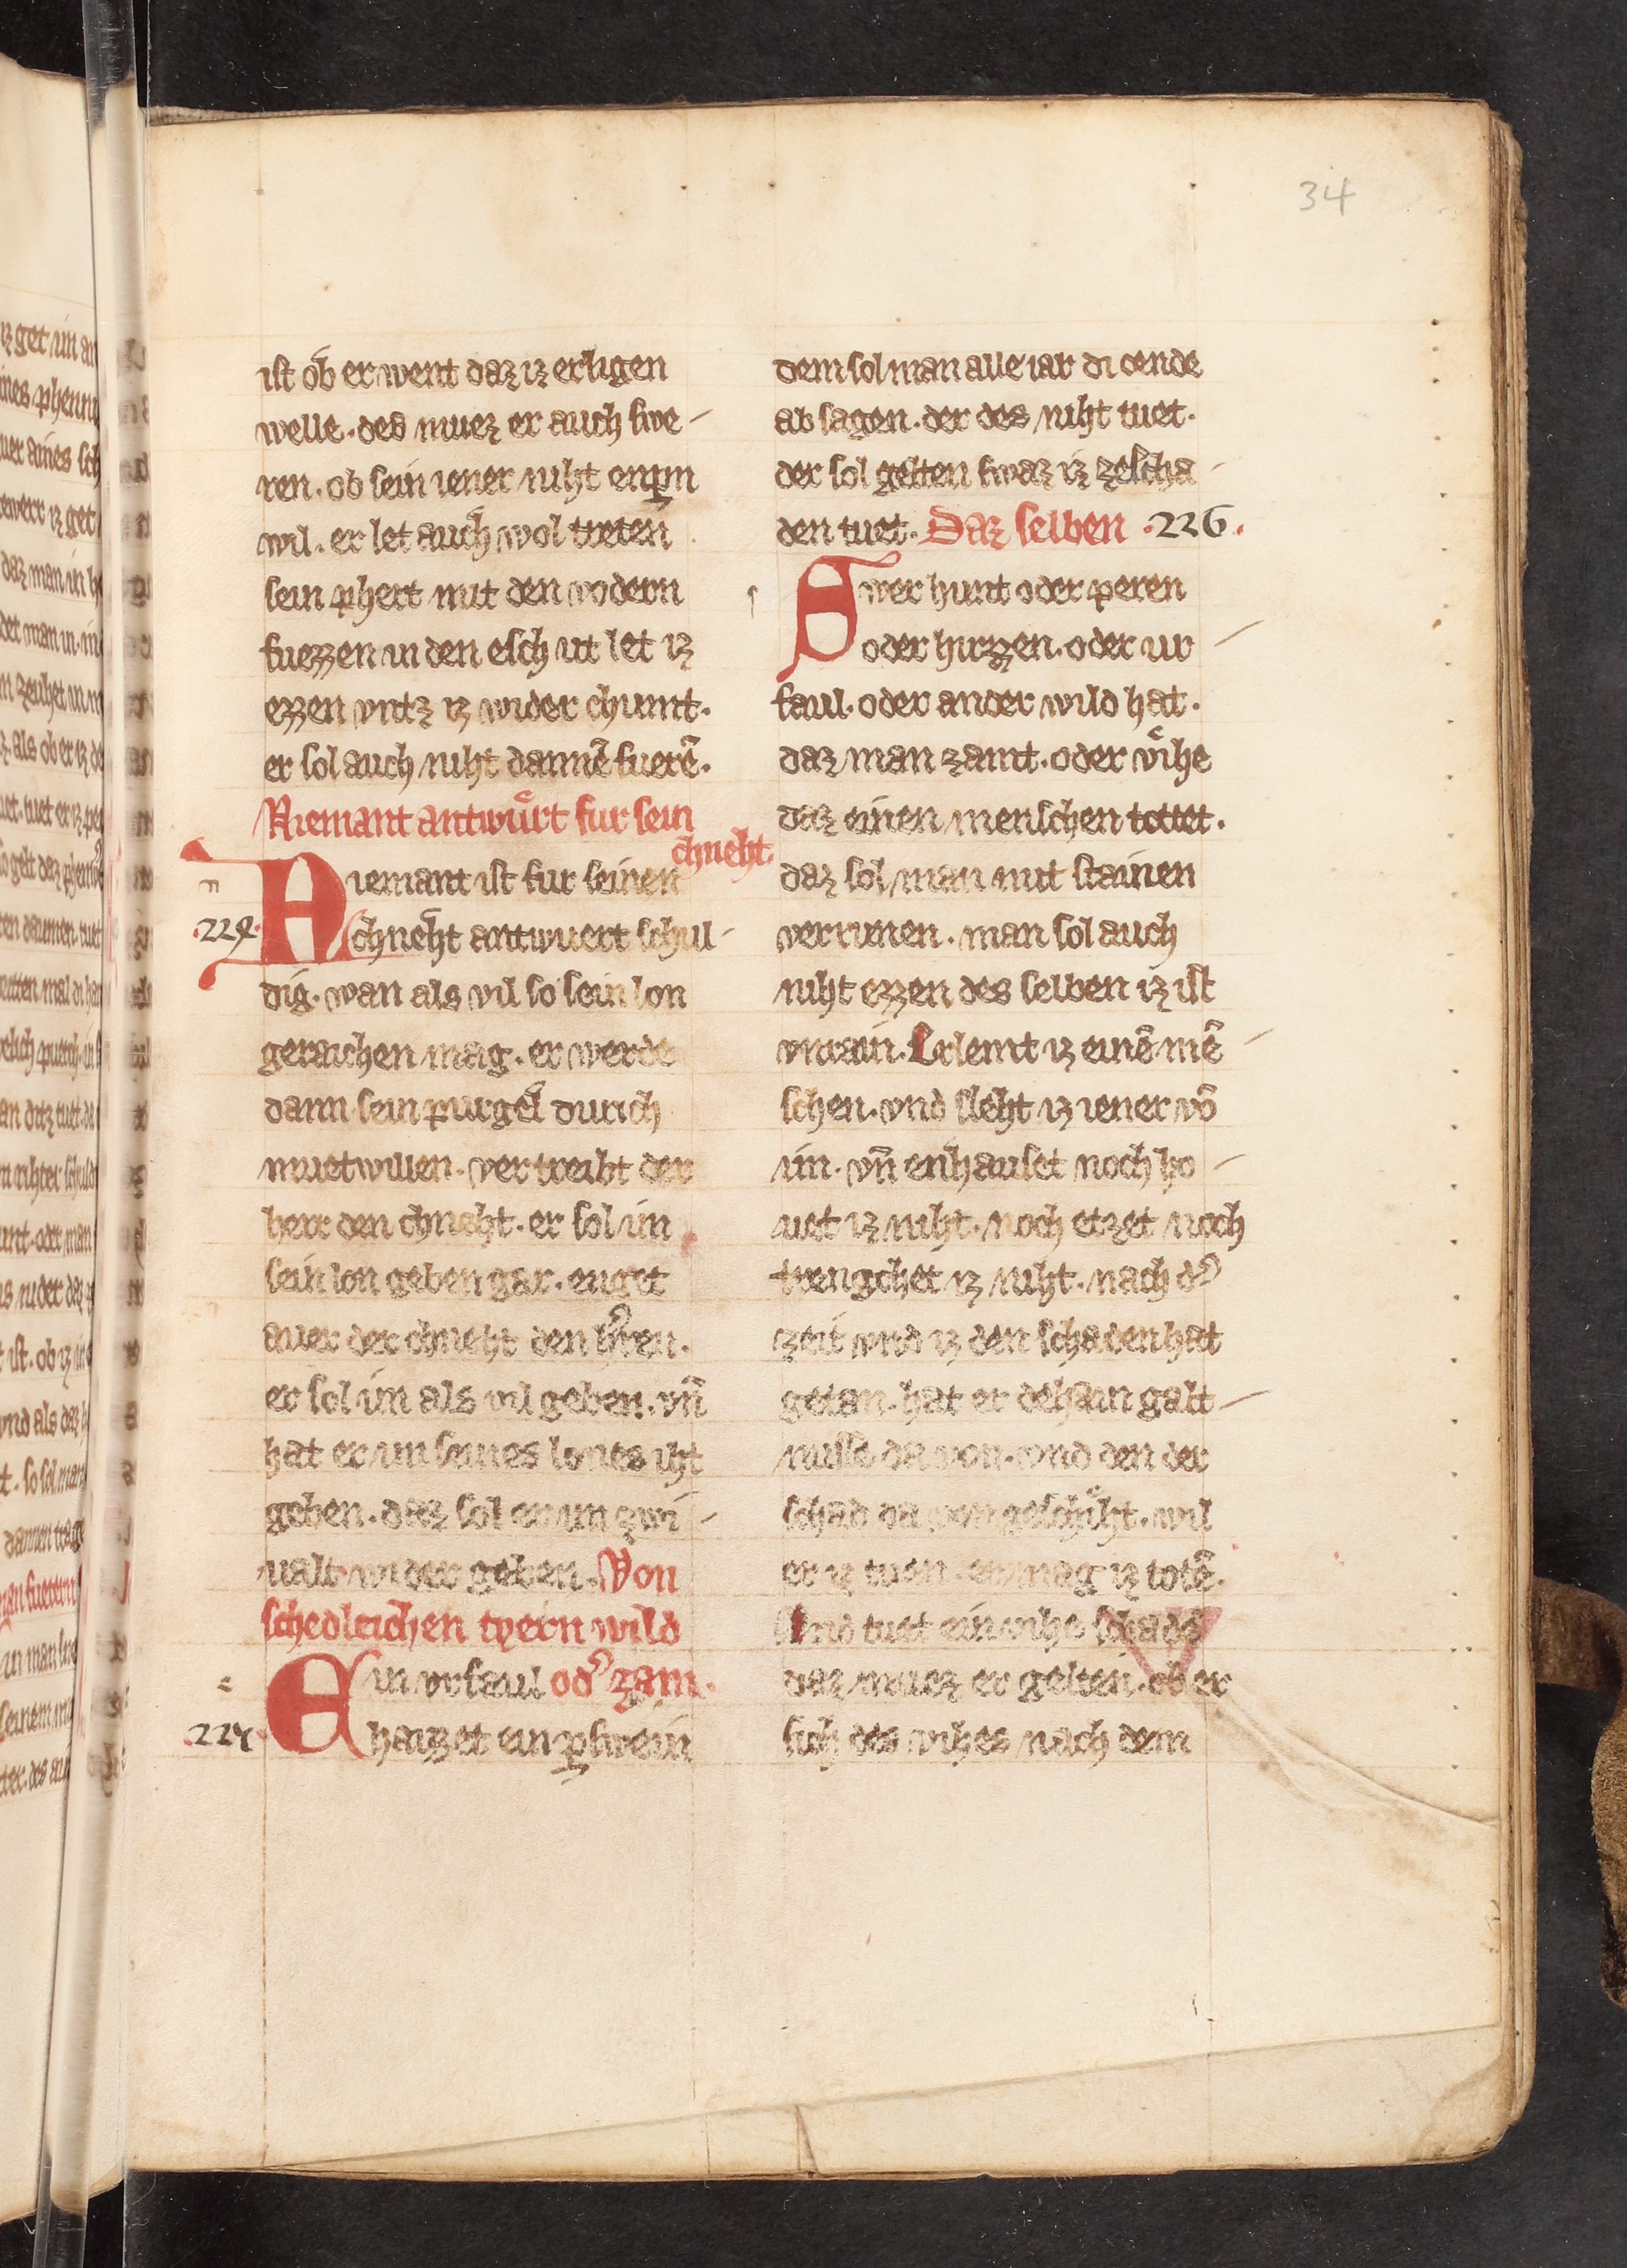 34
ist ob er went daz iz erligen
welle. des muez er auch swe-
ren. ob sein iener niht enpern
wil. er let auch wol treten
sein phert mit den vodern
fuezzen in den esch ut let iz
ezzen vntz iz wider chumt.
er sol auch niht dannē fuerē.
Niemant antwůrt fur sein
chneht.
Niemant ist fur seinen
.224. chneht antwuert schul-
dig. wan als vil so sein lon
geraichen mag. er werde
dann sein purgel durich
muetwillen. vertreibt der
herr den chneht. er sol im
sein lon geben gar. enget
auer der chneht den hˀren.
er sol im als vil geben. vn̄
hat er im seines lones iht
geben. daz sol er im zwi-
ualt wider geben. Von
schedleichen tyern wild
Ein vrfaul odˀ zam.
.225. haizzet ein p swein
dem sol man alle iar di oende
ab sagen. der des niht tuet.
der sol gelten swaz iz zescha-
den tuet. Daz selben .226.
Swer hunt oder peren
oder hirzzen. oder ur-
faul. oder ander wild hat.
daz man zamt. oder vihe
daz einen menschen tottet.
daz sol man mit stainen
verrunen. man sol auch
niht ezzen des selben iz ist
vnrain. Erlemt iz einē mē-
schen. vnd sleht iz iener vō
im. vn̄ enhauset noch ho-
uet iz niht. noch etzet noch
trengchet iz niht. nach dˀ
zeit vnd iz den schaden hat
getan. hat er dehain galt-
nusse da von. vnd den der
schad da von geschiht. wil
er iz tuen. er mag iz totē.
Und tuet ein vihe schadē
daz muez er gelten. ob er
sich des vihes nach dem